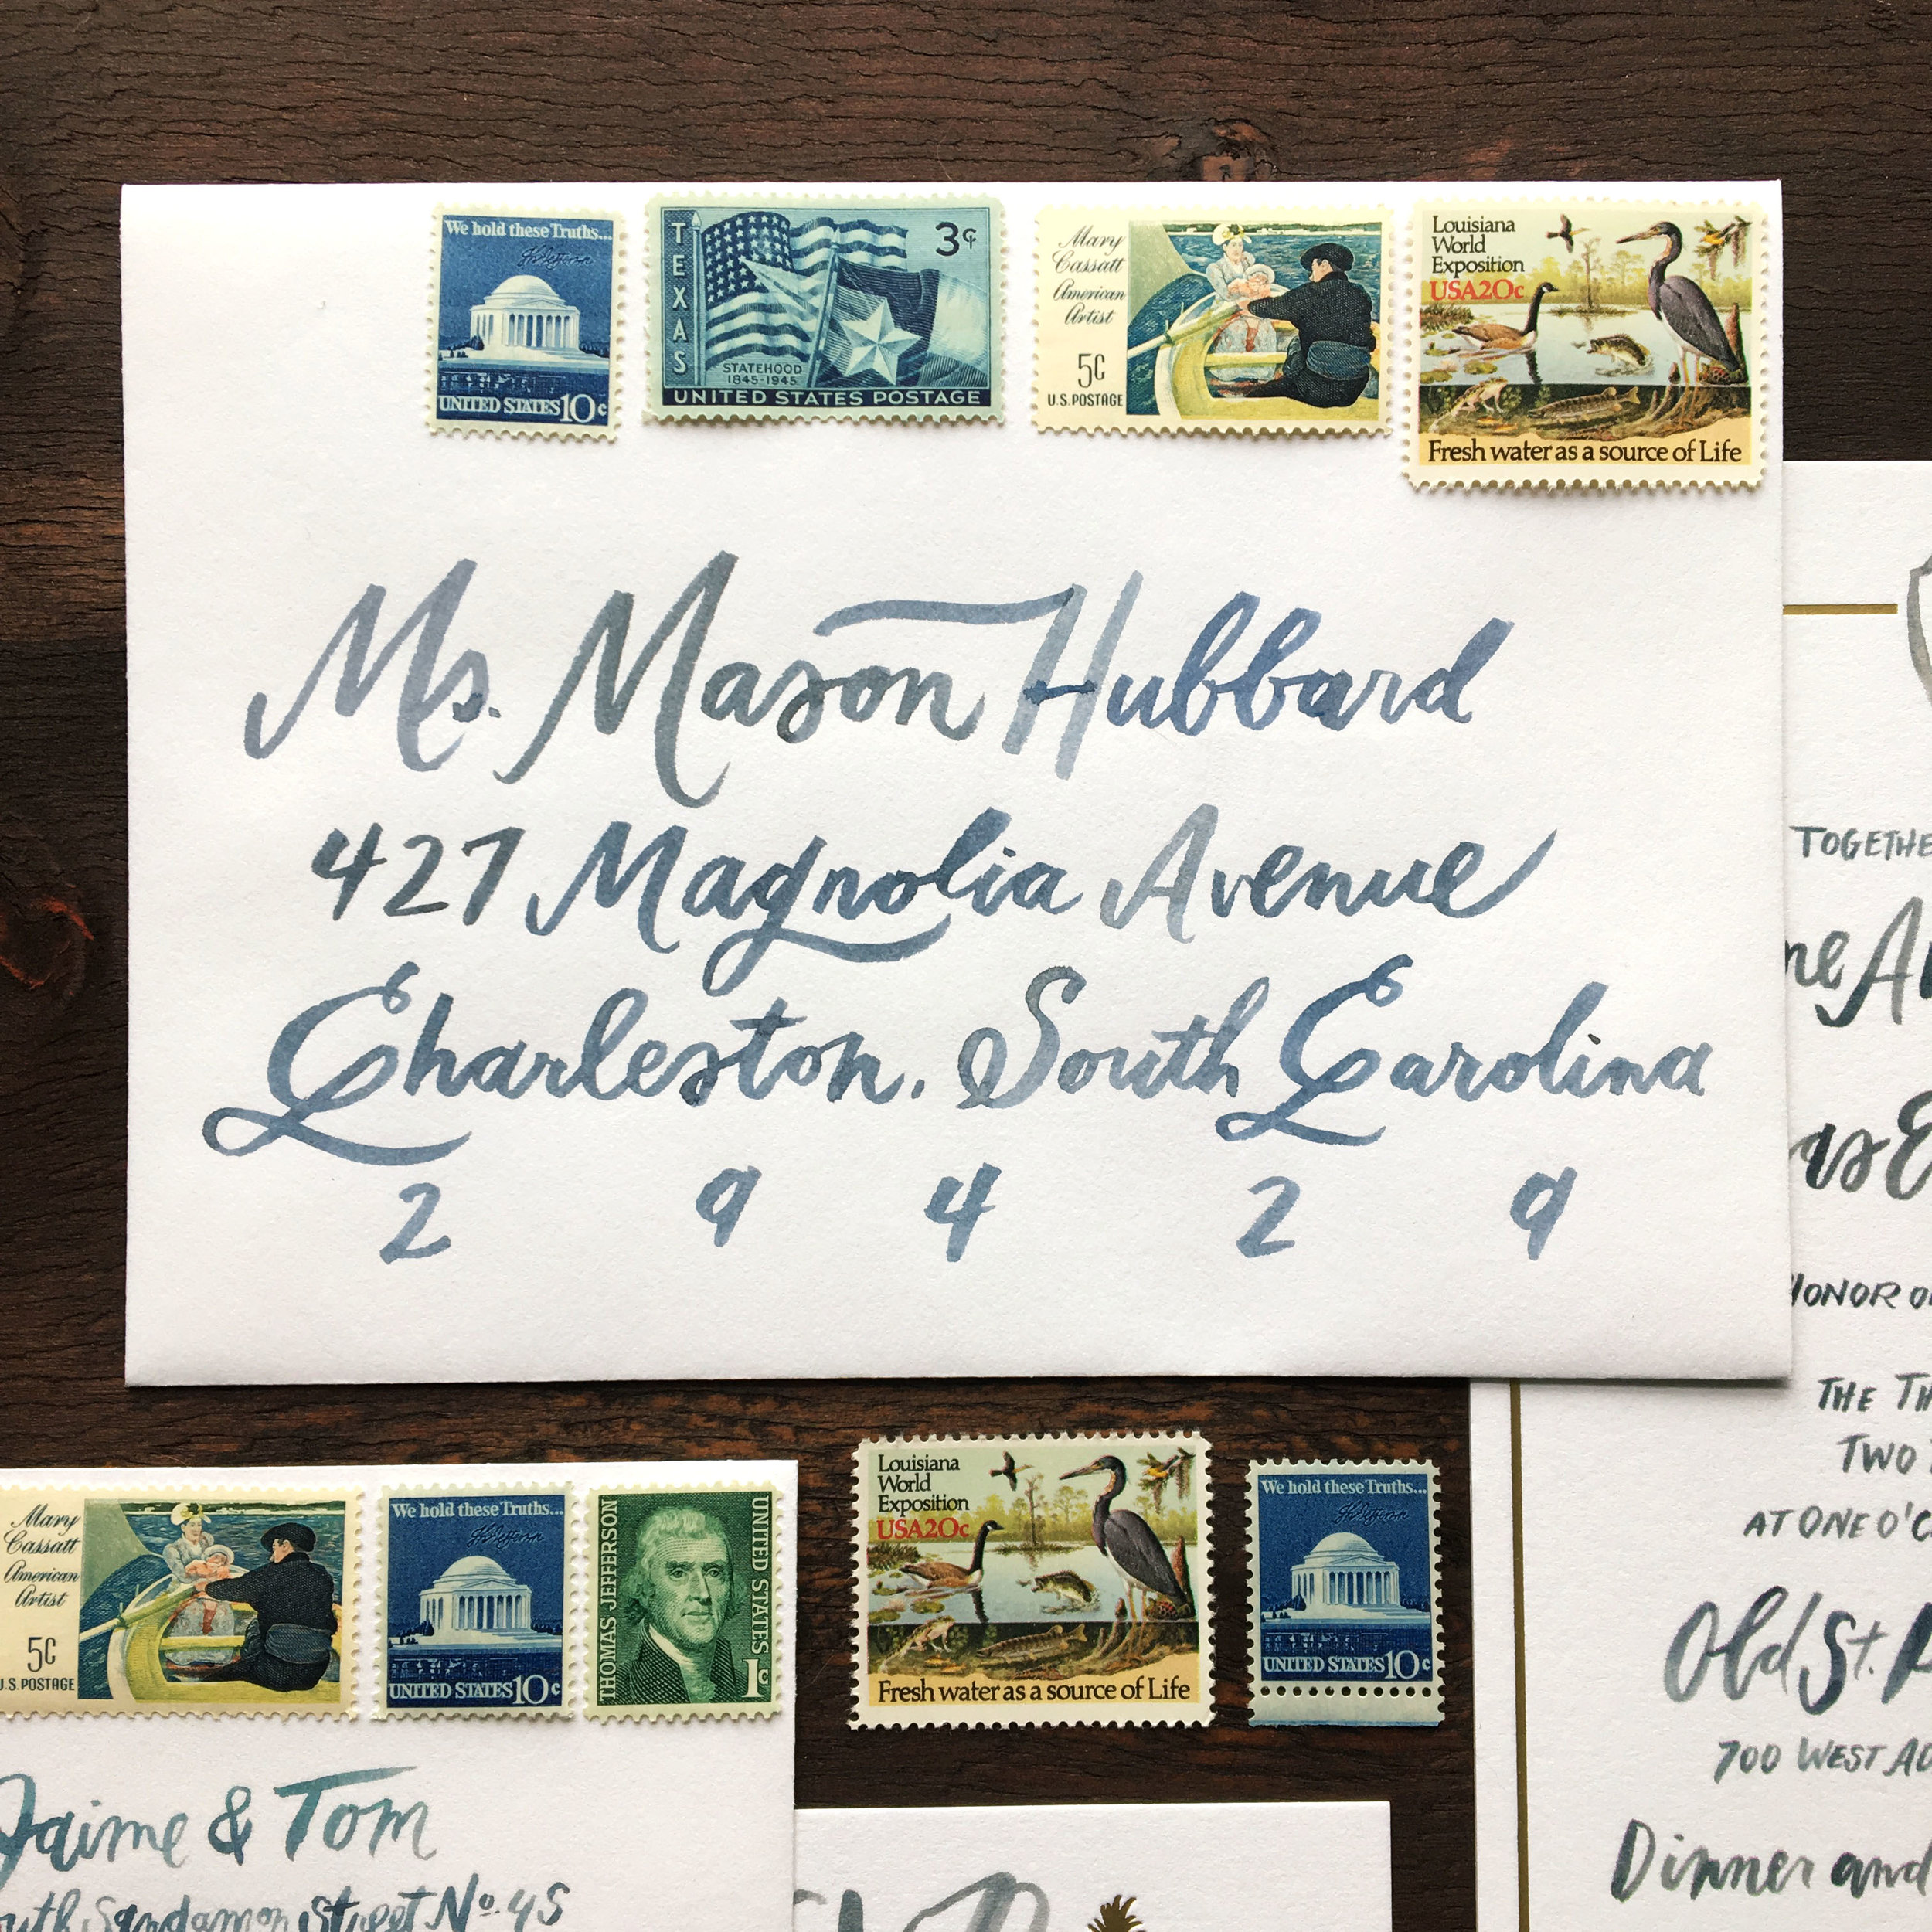 We hold these Truths...
UNITED STATES 10c
TEXAS
3¢
STATEHOOD
1845-1945
UNITED STATES POSTAGE
Mary
Cassatt
American
Artist
5c
U.S. POSTAGE
Louisiana
World
Exposition
USA20c
Fresh water as a source of Life
Ms. Mason Hubbard
427 Magnolia Avenue
Charleston, South Carolina
2 9 4 2 9
Mary
Cassatt
American
Artist
5c
U.S. POSTAGE
We hold these Truths...
UNITED STATES 10c
THOMAS JEFFERSON
UNITED STATES 1c
Jaime & Tom
Street No. 45
Louisiana
World
Exposition
USA20c
Fresh water as a source of Life
We hold these Truths...
UNITED STATES 10c
HONOR
THE
TWO
AT ONE
Old St.
700 WEST
Dinner and